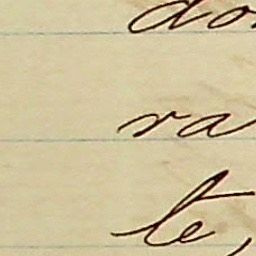 do
ra
te,